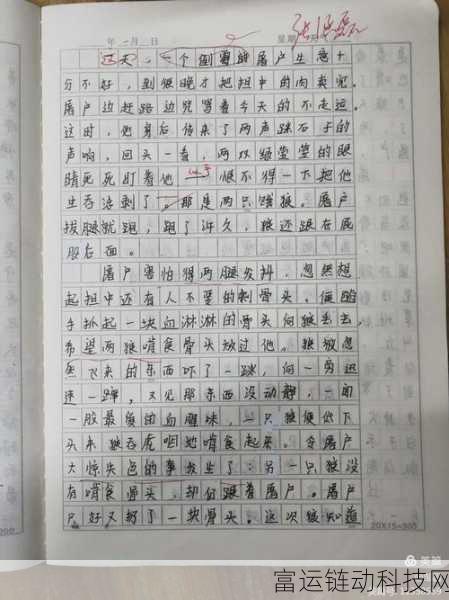 年 月 日 星期
这天,一个倒霉的屠户生意十
分不好,到很晚才把担中的肉卖完。
屠户边赶路边咒骂着今天的不走运。
这时,他身后传来了两声踩石子的
声响,回头一看,两双绿莹莹的眼
睛死死盯着他 恨不得一下把他
生吞活剥了。那是两只饿狼。屠户
拔腿就跑,跑了许久,狼还跟在屠
户后面。
屠户害怕得两腿发抖,忽然想
起担中还有人不要的剩骨头,便
手抓起一块血淋淋的骨头向狼丢去,
希望两狼啃食骨头放过他。狼被忽
然飞来的东西吓了一跳,向一旁迅
速一蹿,又见那东西没动静,一闻
一股最爱的血腥味,一只狼便低下
头来狼吞虎咽地啃食起来。令屠户
大惊失色的事发生了:另一只狼没
有啃食骨头,却仍跟着屠户。屠户
只好又扔了一块骨头。这次狼知道
20X15=300
美篇
富运链动科技网